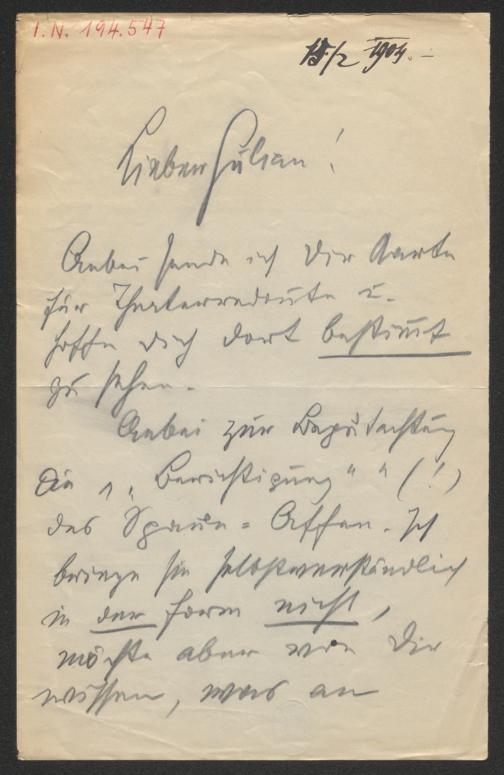 I.N. 194.547
15/2 1904.
Lieber Julian!
Anbei sende ich Dir Karte
für Theaterredoute u.
hoffe dich dort bestimmt
zu sehen.
Anbei zur Begutachtung
die „„Berichtigung"" (!)
des Spaun=Affen. Ich
bringe sie selbstverständlich
in der Form nicht,
möchte aber von Dir
wissen, was an